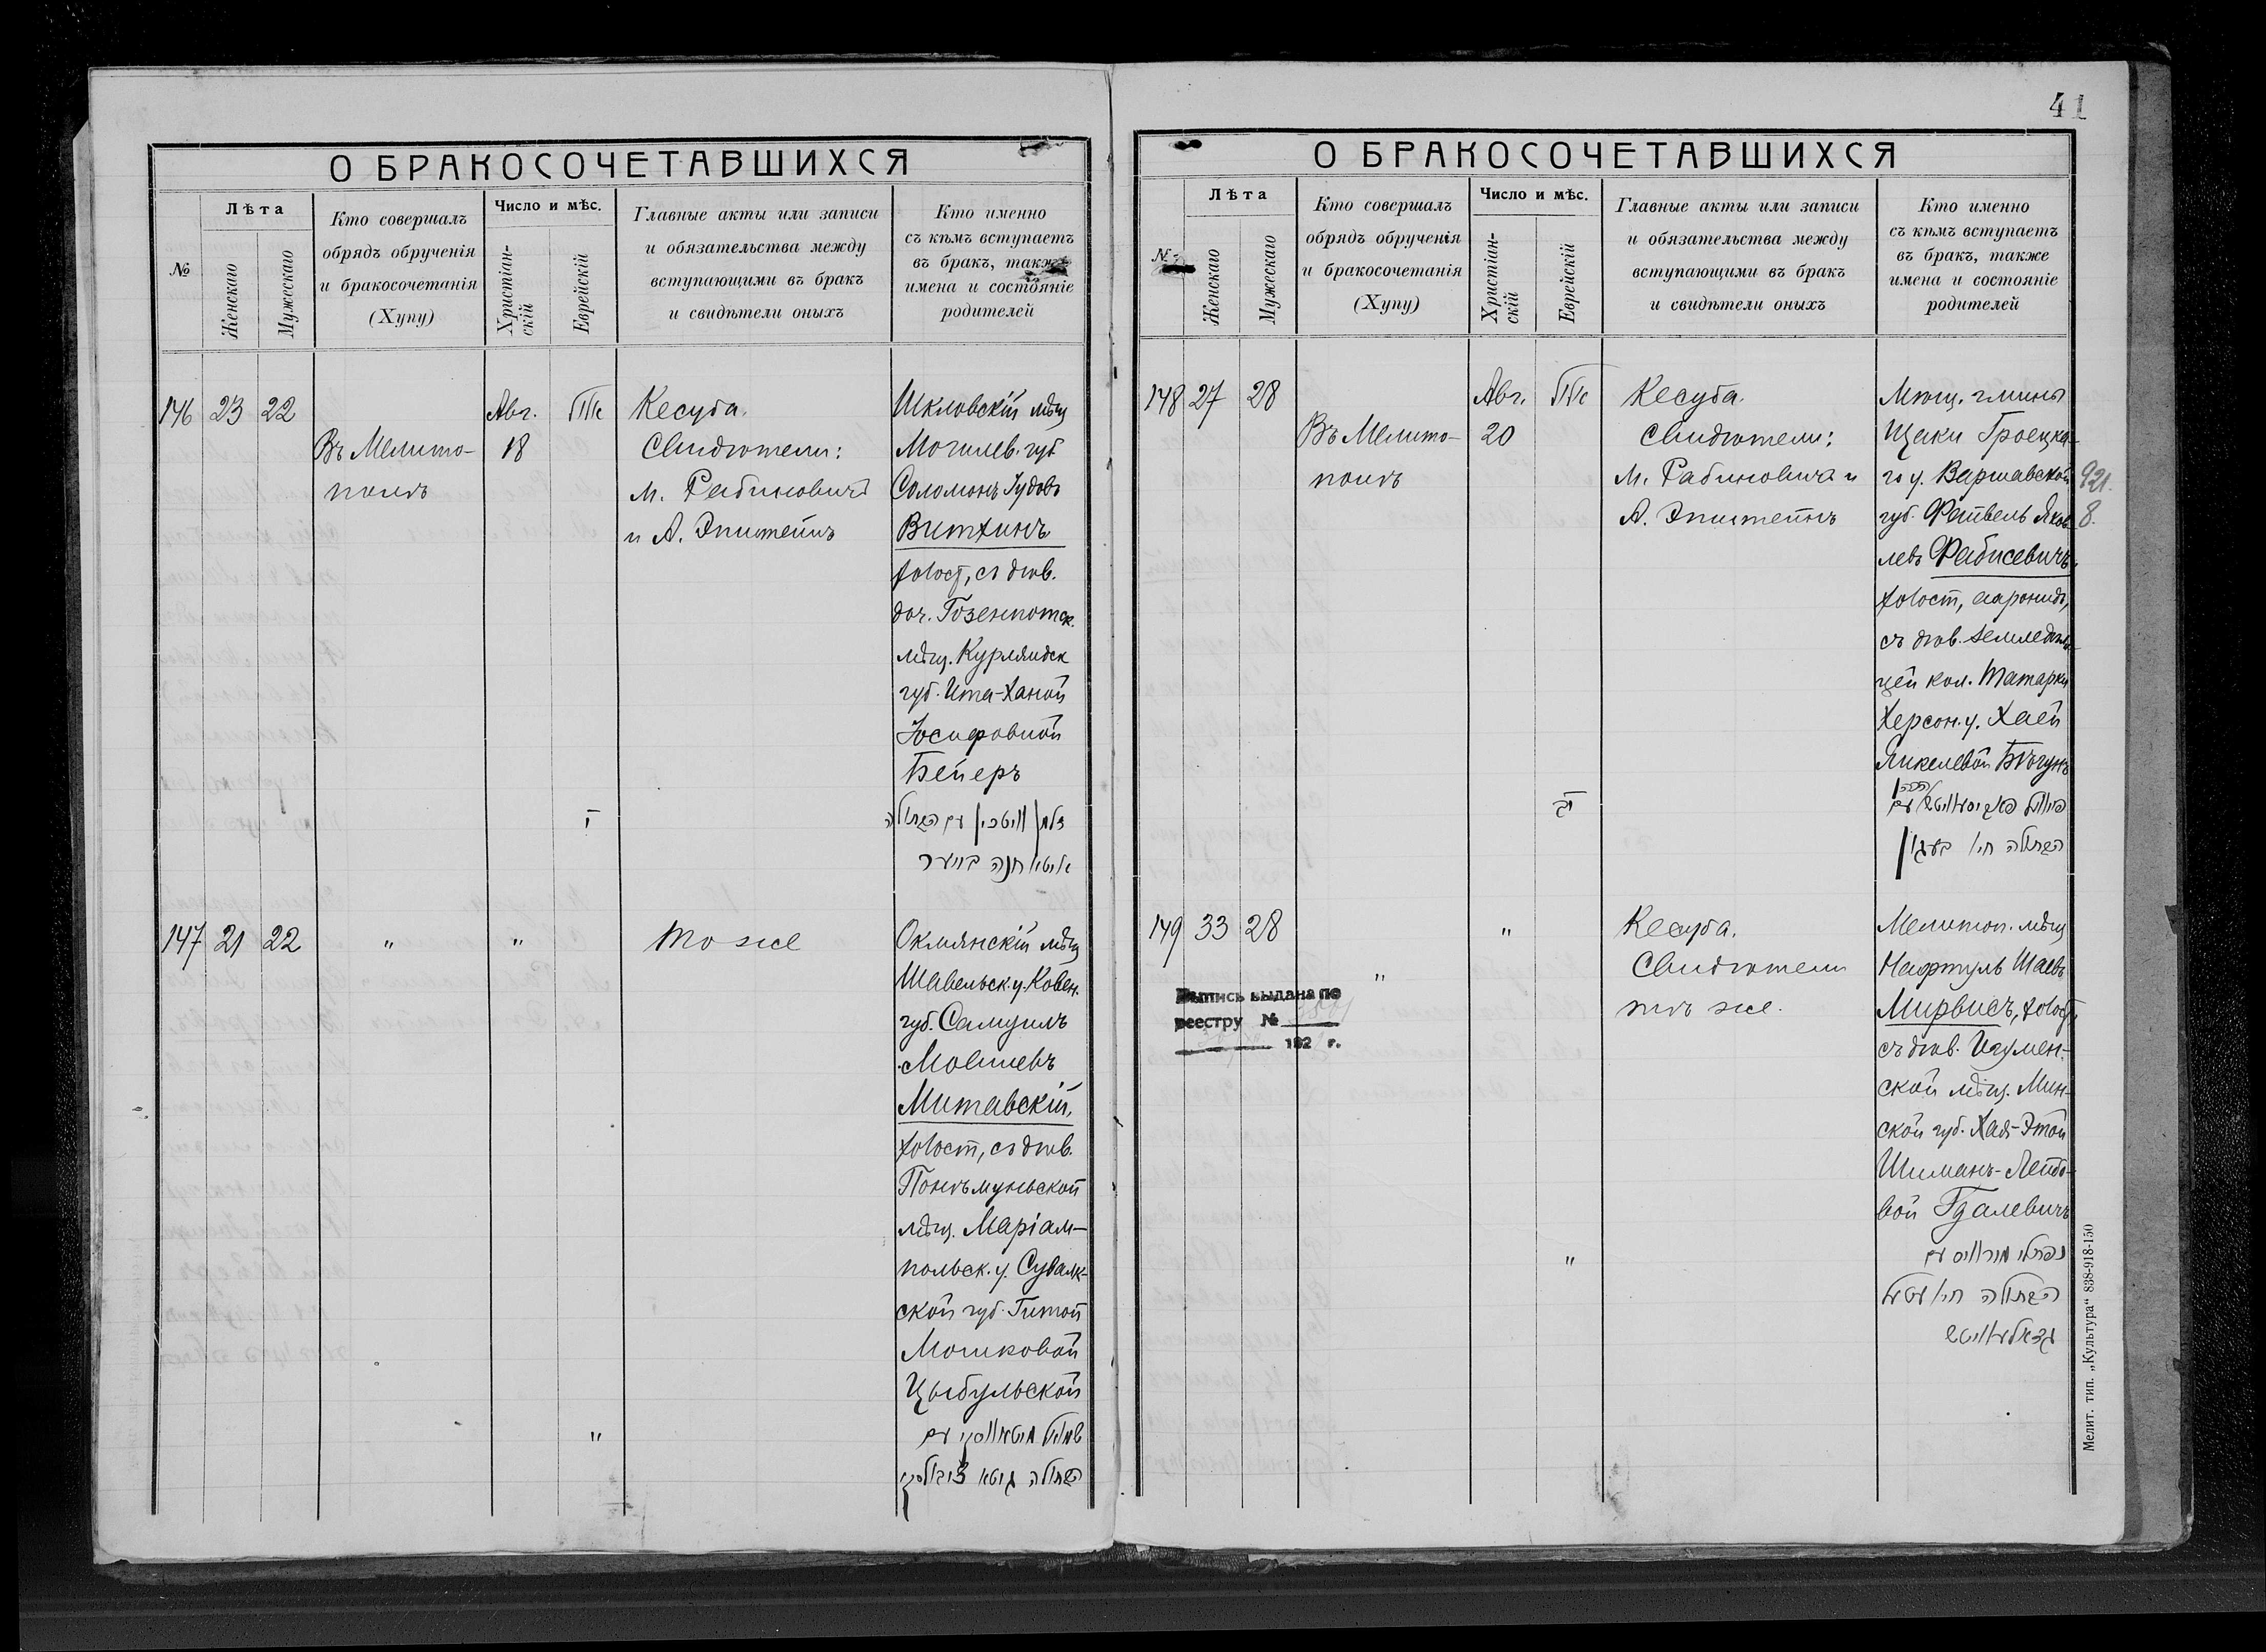 О БРАКОСОЧЕТАВШИХСЯ
№
Лѣта
Женскаго
Мужескаго
Кто совершалъ
обрядъ обрученія
и бракосочетанія
(Хупу)
Число и мѣс.
Христіан-
скій
Еврейскій
Главные акты или записи
и обязательства между
вступающими въ бракъ
и свидѣтели оныхъ
Кто именно
съ кѣмъ вступаетъ
въ бракъ, также
имена и состояніе
родителей
146 23 22
Въ Мелито-
полѣ
Авг.
18
י
Кесуба.
Свидѣтели:
М. Рабиновичъ
и А. Эпштейнъ
Шкловскій мѣщ
Могилев. губ
Соломонъ Іудовъ
Виткинъ
холост, съ дѣв.
доч. Газенпотск.
мѣщ. Курляндск
губ. Ита-Ханой
Іосифовной
Бейеръ
חנה בייער
147 21 22
"
"
"
То же
Окмянскій мѣщ
Шавельск. у. Ковен.
губ. Самуилъ
Мовшевъ
Митавскій,
холост, съ дѣв.
Понѣмуньской
мѣщ. Маріам-
польск. у. Сувалк-
ской губ. Гитой
Мошковой
Цыбульской
הבתולה גיטא ציבולסקי
41
О БРАКОСОЧЕТАВШИХСЯ
№
Лѣта
Женскаго
Мужескаго
Кто совершалъ
обрядъ обрученія
и бракосочетанія
(Хупу)
Число и мѣс.
Христіан-
скій
Еврейскій
Главные акты или записи
и обязательства между
вступающими въ бракъ
и свидѣтели оныхъ
Кто именно
съ кѣмъ вступаетъ
въ бракъ, также
имена и состояніе
родителей
148 27 28
Въ Мелито-
полѣ
Авг.
20
יב
Кесуба.
Свидѣтели:
М. Рабиновичъ и
А. Эпштейнъ
гмины
Щаки Гроецка-
го у. Варшавской
губ. Файвель Яков-
левъ Фабисевичъ,
холост, ааронидъ,
съ дѣв. земледѣль-
цей кол. Татарки
Херсон. у. Хаей
Янкелевой Бѣгунъ
הבתולה חיא בעגון
921.
8.
149 33 28
"
"
"
Кесуба.
Свидѣтели
тѣ же.
Мелитоп. мѣщ
Нафтуль Шаевъ
Мирвисъ, холост,
съ дѣв. Игумен-
ской мѣщ. Мин-
ской губ. Хая-Этой
Шиманъ-Лейбо-
вой Гдалевичъ
נפתלי מירוויס עם
הבתולה חיא עטע
גדאלעוויטש
Выпись выдана по
реестру №
192 г.
Мелит. тип. „Культура“ 838-918-150